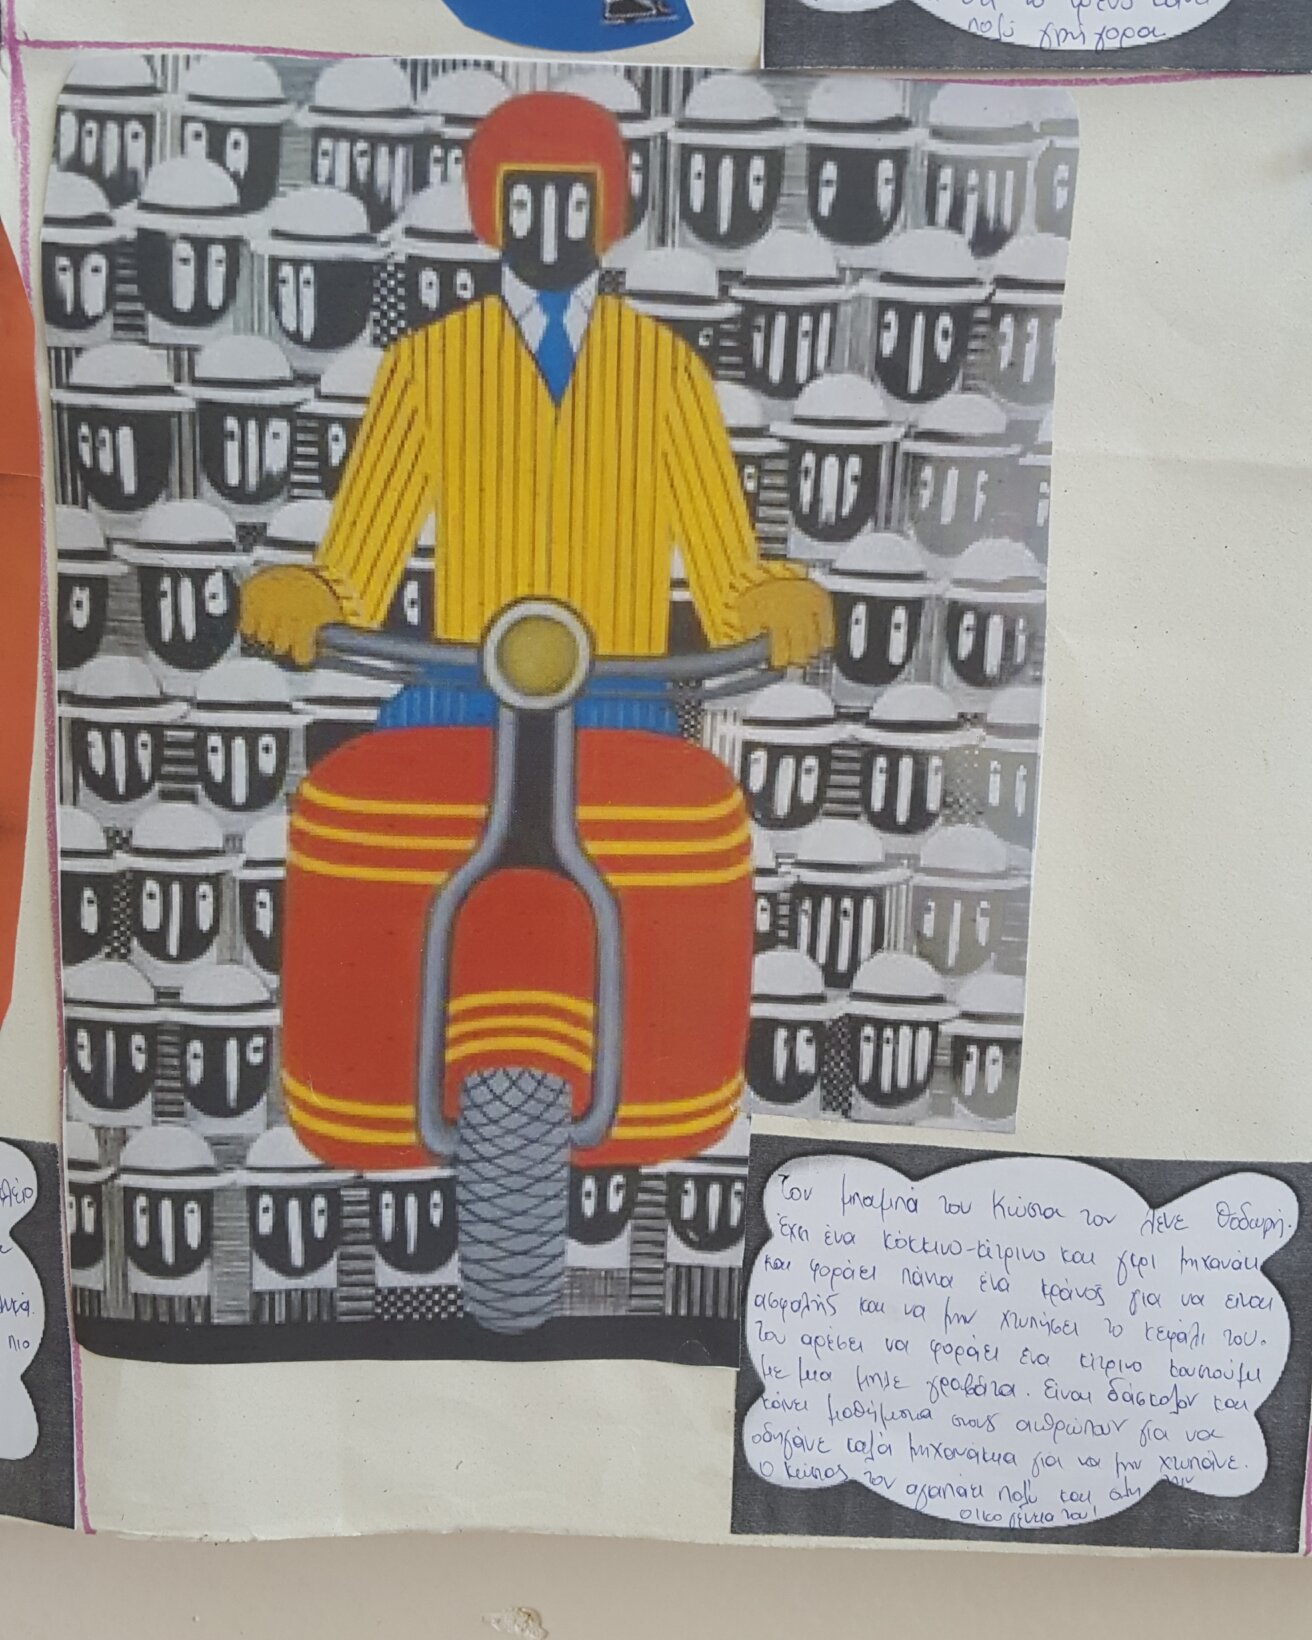 πολύ γρήγορα
πιο
Τον μπαμπά του Κώστα τον λένε Θοδωρή.
Έχει ένα κόκκινο-κίτρινο και γκρι μηχανάκι
και φοράει πάντα ένα κράνος για να είναι
ασφαλής και να μην χτυπήσει το κεφάλι του.
Του αρέσει να φοράει ένα κίτρινο κουστούμι
με μια μπλε γραβάτα. Είναι δάσκαλος και
κάνει μαθήματα στους ανθρώπους για να
οδηγάνε καλά μηχανάκια για να μην χτυπάνε.
Ο Κώστας τον αγαπάει πολύ και όλη την
οικογένεια του!